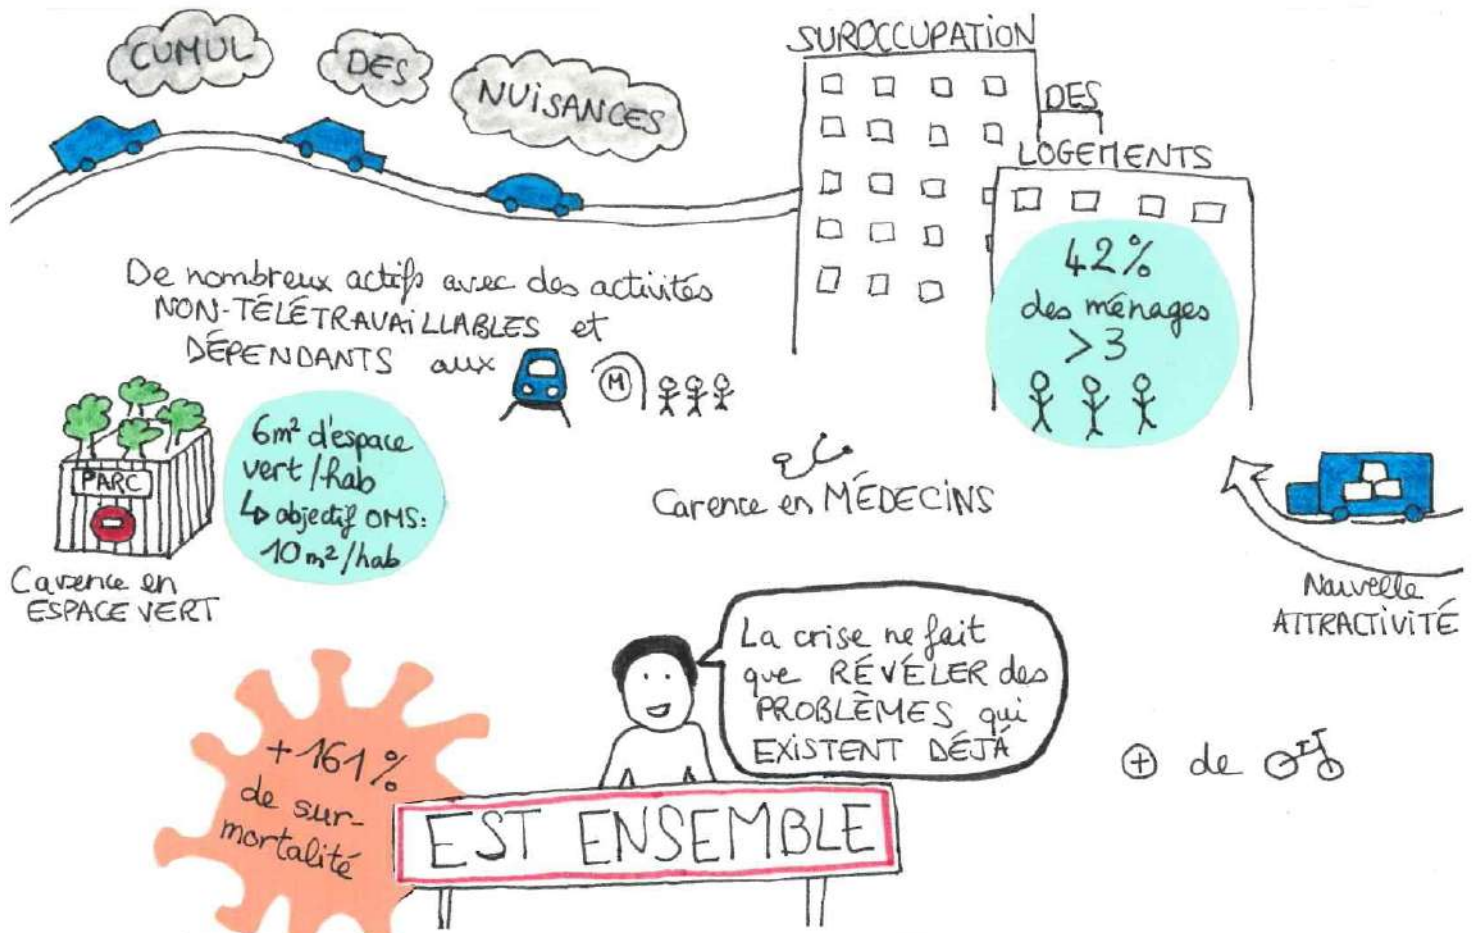 CUMUL
DES
NUISANCES
SUROCCUPATION
DES
LOGEMENTS
42%
des ménages
>3
De nombreux actifs avec des activités
NON-TÉLÉTRAVAILLABLES et
DÉPENDANTS aux
M
PARC
6m² d'espace
vert/hab
↳ objectif OMS:
10m²/hab
Carence en
ESPACE VERT
Carence en MÉDECINS
Nouvelle
ATTRACTIVITÉ
La crise ne fait
que RÉVÉLER des
PROBLÈMES qui
EXISTENT DÉJÀ
+161%
de sur-
mortalité
EST ENSEMBLE
+ de